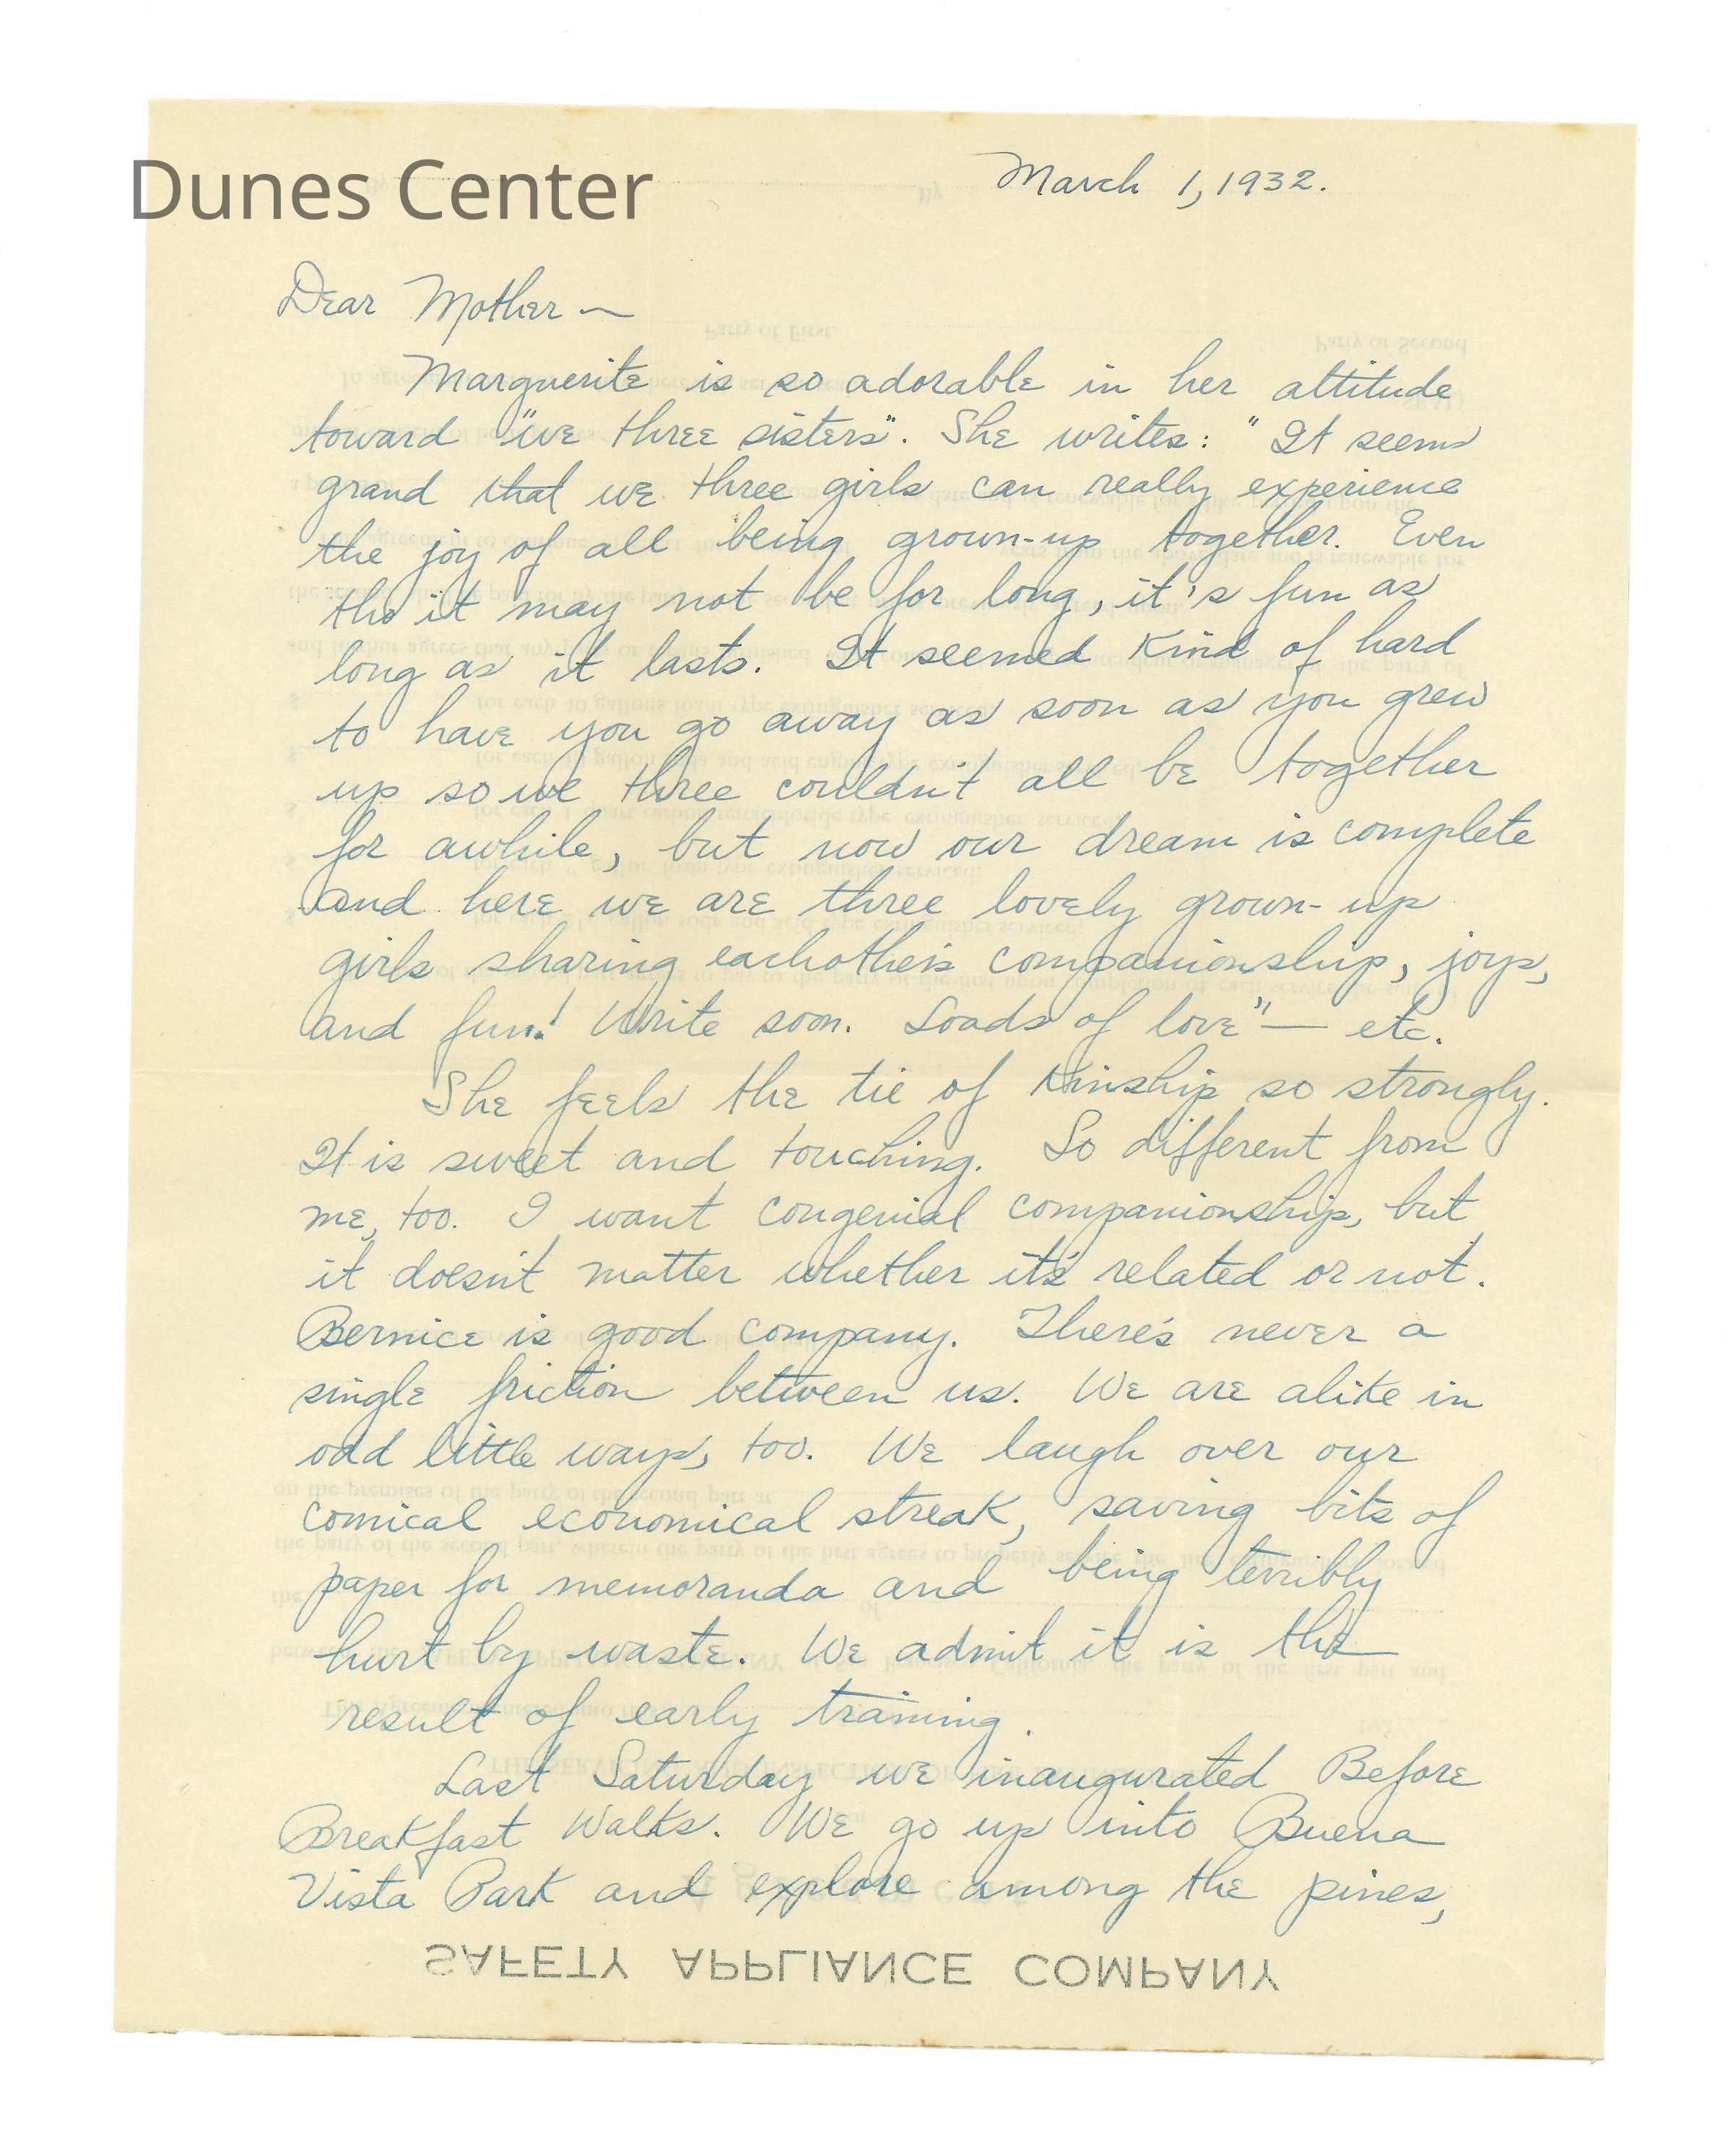 Dunes Center
March 1, 1932.
Dear Mother —
Marguerite is so adorable in her attitude
toward "we three sisters". She writes: "It seems
grand that we three girls can really experience
the joy of all being grown-up together. Even
tho it may not be for long, it's fun as
long as it lasts. It seemed kind of hard
to have you go away as soon as you grew
up so we three couldn't all be together
for awhile, but now our dream is complete
and here we are three lovely grown-up
girls sharing eachother's companionship, joys,
and fun! Write soon. Loads of love" — etc.
She feels the tie of kinship so strongly.
It is sweet and touching. So different from
me, too. I want congenial companionship, but
it doesn't matter whether it's related or not.
Bernice is good company. There's never a
single friction between us. We are alike in
odd little ways, too. We laugh over our
comical economical streak, saving bits of
paper for memoranda and being terribly
hurt by waste. We admit it is the
result of early training.
Last Saturday we inaugurated Before
Breakfast Walks. We go up into Buena
Vista Park and explore among the pines,
SAFETY APPLIANCE COMPANY